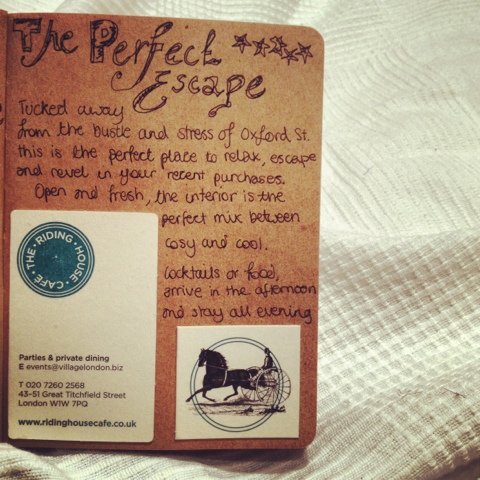 The Perfect
Escape
Tucked away
from the bustle and stress of Oxford St.
this is the perfect place to relax, escape
and revel in your recent purchases.
Open and fresh, the interior is the
perfect mix between
cosy and cool.
Cocktails or food,
arrive in the afternoon
and stay all evening
THE · RIDING · HOUSE · CAFE ·
Parties & private dining
E events@villagelondon.biz
T 020 7260 2568
43-51 Great Titchfield Street
London W1W 7PQ
www.ridinghousecafe.co.uk